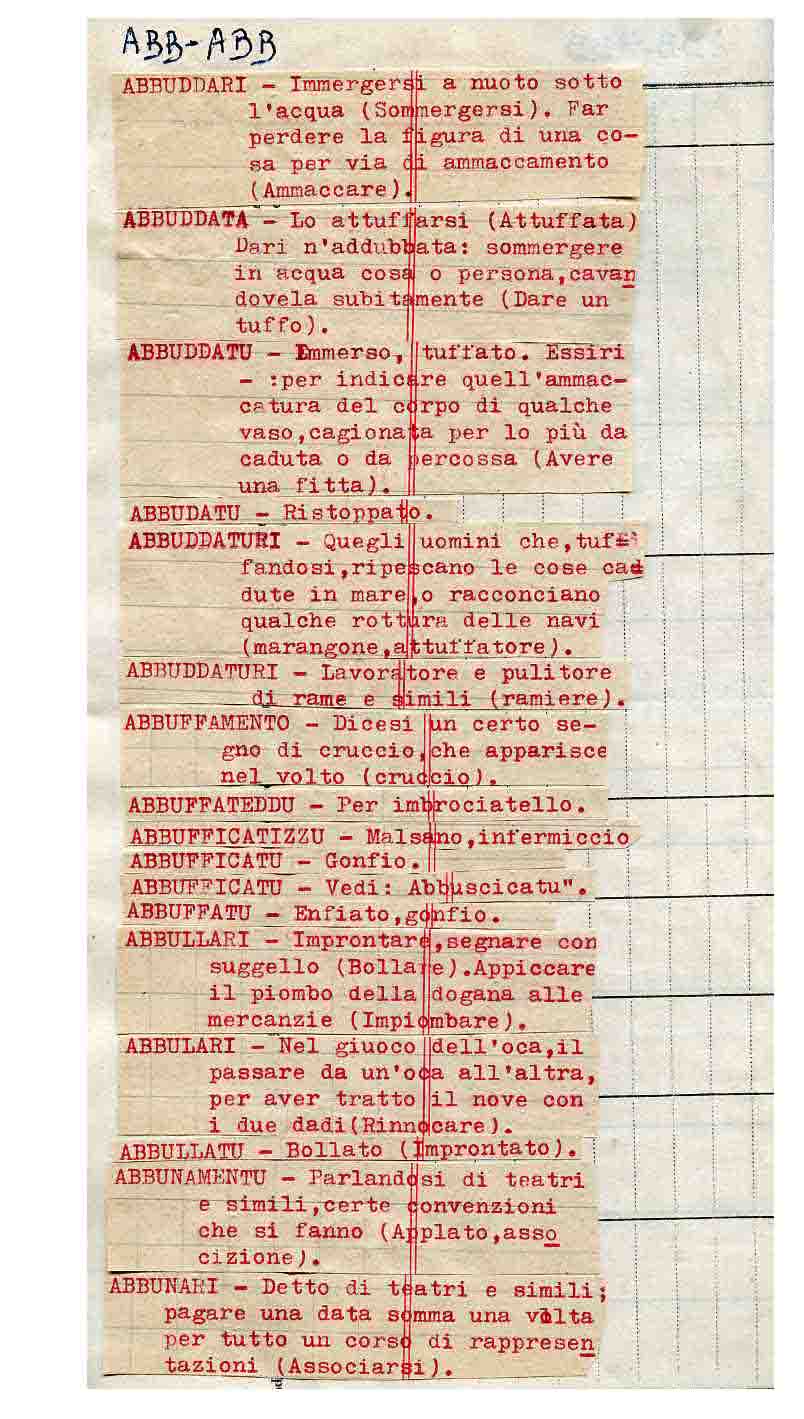 ABB-ABB
ABBUDDARI - Immergersi a nuoto sotto
l'acqua (Sommergersi). Far
perdere la figura di una co-
sa per via di ammaccamento
(Ammaccare).
ABBUDDATA - Lo attuffarsi (Attuffata)
Dari n'addubbata: sommergere
in acqua cosa o persona,cavan
dovela subitamente (Dare un
tuffo).
ABBUDDATU - Immerso, tuffato. Essiri
- :per indicare quell'ammac-
catura del corpo di qualche
vaso,cagionata per lo più da
caduta o da percossa (Avere
una fitta).
ABBUDATU - Ristoppato.
ABBUDDATURI - Quegli uomini che,tuf
fandosi,ripescano le cose cad
dute in mare,o racconciano
qualche rottura delle navi
(marangone,attuffatore).
ABBUDDATURI - Lavoratore e pulitore
di rame e simili (ramiere).
ABBUFFAMENTO - Dicesi un certo se-
gno di cruccio,che apparisce
nel volto (cruccio).
ABBUFFATEDDU - Per imbrociatello.
ABBUFFICATIZZU - Malsano,infermiccio
ABBUFFICATU - Gonfio.
ABBUFFICATU - Vedi: Abbuscicatu".
ABBUFFATU - Enfiato,gonfio.
ABBULLARI - Improntare,segnare con
suggello (Bollare).Appiccare
il piombo della dogana alle
mercanzie (Impiombare).
ABBULARI - Nel giuoco dell'oca,il
passare da un'oca all'altra,
per aver tratto il nove con
i due dadi(Rinnocare).
ABBULLATU - Bollato (Improntato).
ABBUNAMENTU - Parlandosi di teatri
e simili,certe convenzioni
che si fanno (Applato,asso
cizione).
ABBUNARI - Detto di teatri e simili;
pagare una data somma una volta
per tutto un corso di rappresen
tazioni (Associarsi).